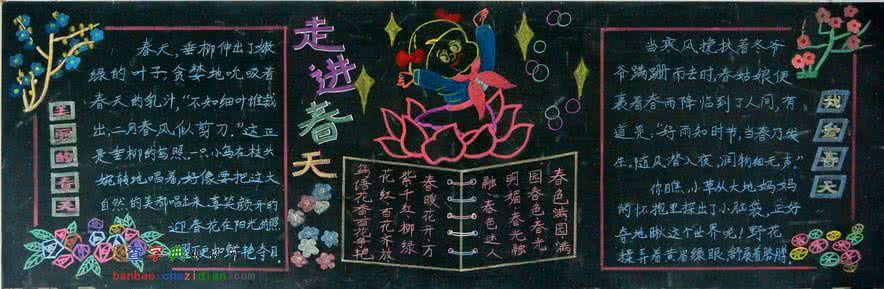 美丽的春天
春天,垂柳伸出了嫩
绿的叶子,贪婪地吮吸着
春天的乳汁,“不知细叶谁裁
出,二月春风似剪刀。”这正
是垂柳的写照。一只小鸟在枝头
婉转地唱着,好像要把这大
自然的美都唱出来,真笑颜开的
迎春花在阳光的照
耀下更加娇艳夺目
banbao.chazidian.com
走进春天
春色满园满
园春色春光
明媚春光融
融春色迷人
春暖花开万
紫千红柳绿
花红百花齐放
鸟语花香百花争艳
当寒风搀扶着冬爷
爷蹒跚而去时,春姑娘便
裹着春雨降临到了人间,有
道是:“好雨知时节,当春乃发
生,随风潜入夜,润物细无声。”
你瞧,小草从大地妈妈
的怀抱里探出了小脑袋,正好
奇地瞅这个世界光!野花
揉弄着黄眉绿眼,舒展着胳膊
我爱春天